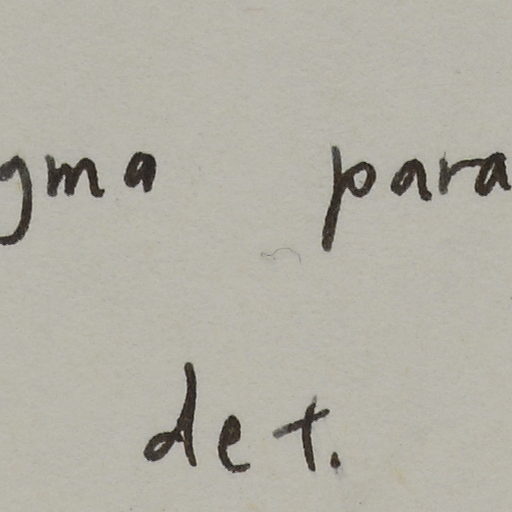 gma para
det.